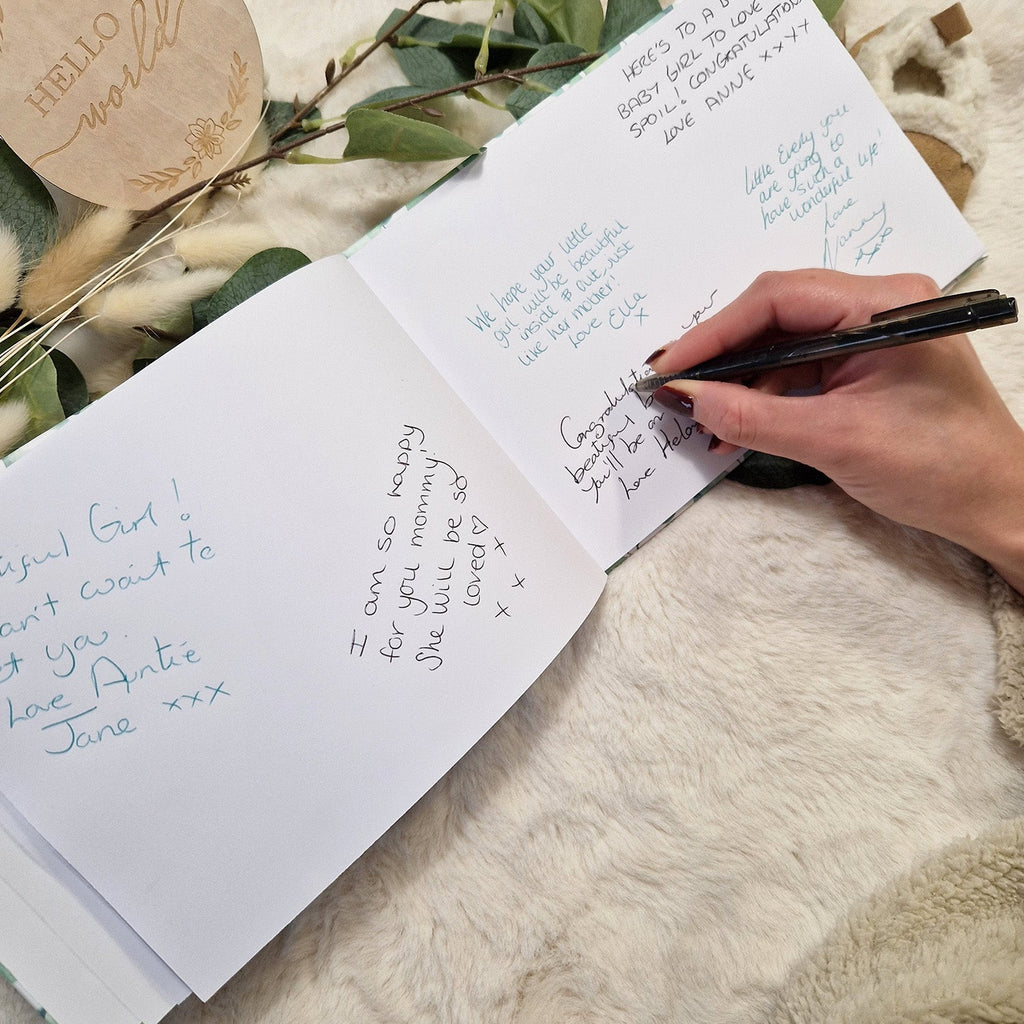 HELLO
world
HERE'S TO A
BABY GIRL TO LOVE
SPOIL! CONGRATULATION
LOVE ANNE xxxx
Little Every you
are going to
have such a
wonderful life!
Love
Nanny
xxxx
We hope your little
girl will be beautiful
inside & out, just
like her mother!
Love Ella
x
your
beautiful
you'll be an
love
Girl!
want to
you.
Love Auntie
Jane xxx
I am so happy
for you mommy!
She will be so
loved ♡
x x x